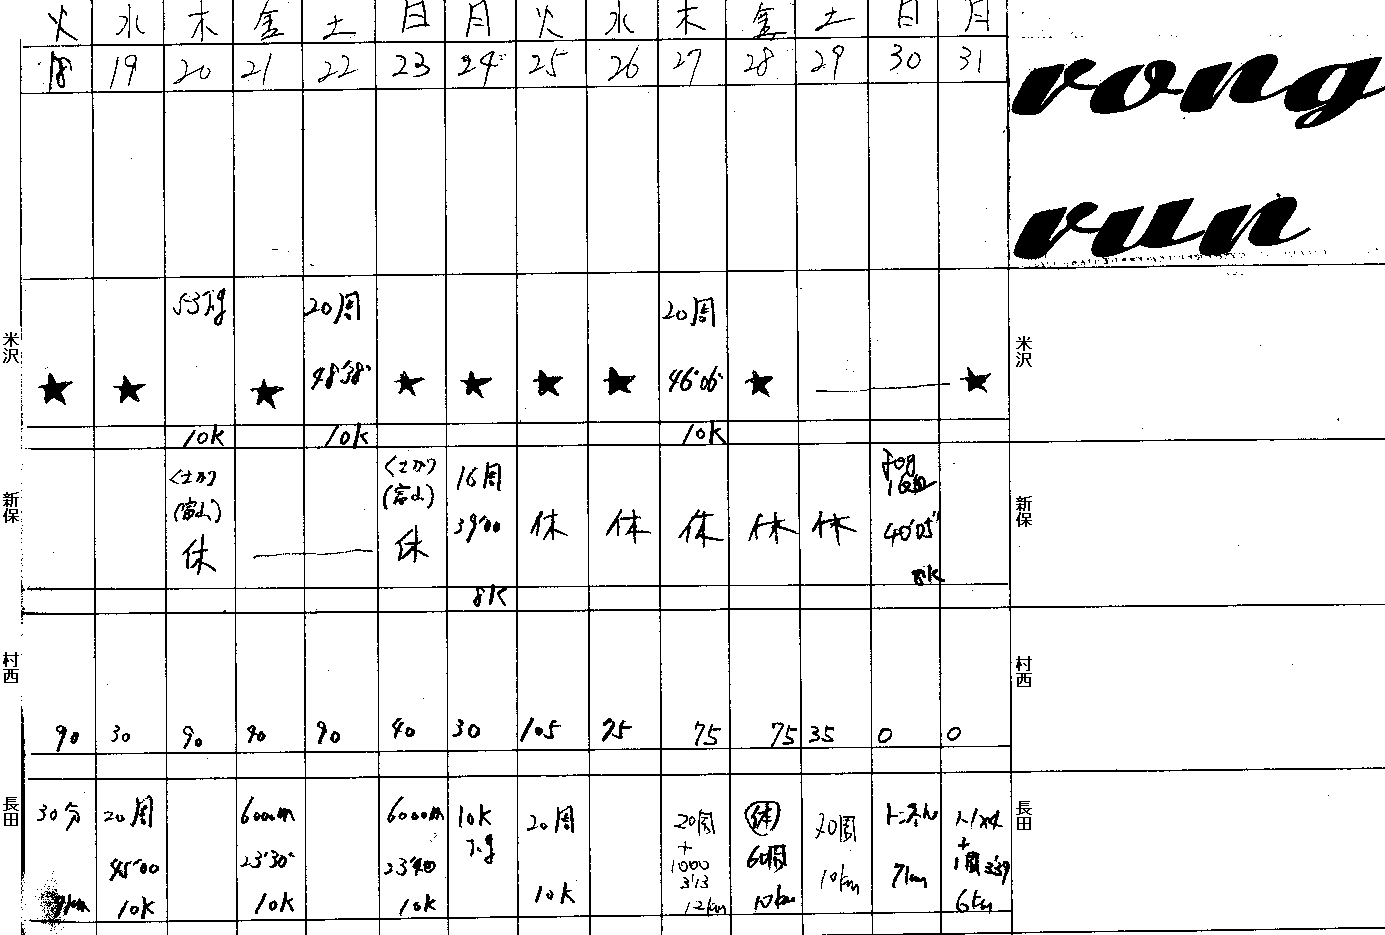 火 水 木 金 土 日 月 火 水 木 金 土 日 月
18 19 20 21 22 23 24 25 26 27 28 29 30 31
rong
run
米沢
20周 20周
★ ★ ★ 48'38" ★ ★ ★ ★ 46'06" ★ ★
10K 10K 10K
米沢
新保
16周
(富山) (富山) 39'00
休 休 休 休 休 休 休 40'05"
8K 8K
新保
村西
90 30 90 90 90 40 30 105 75 75 75 35 0 0
村西
長田
30分 20周 6000m 6000m 10K 20周 20周 休 トンネル
+ 60周 +
45'00 23'30" 23'40 1000 1周 3'39
3'13
7km 10K 10K 10K 10K 12km 10km 10km 7km 6km
長田